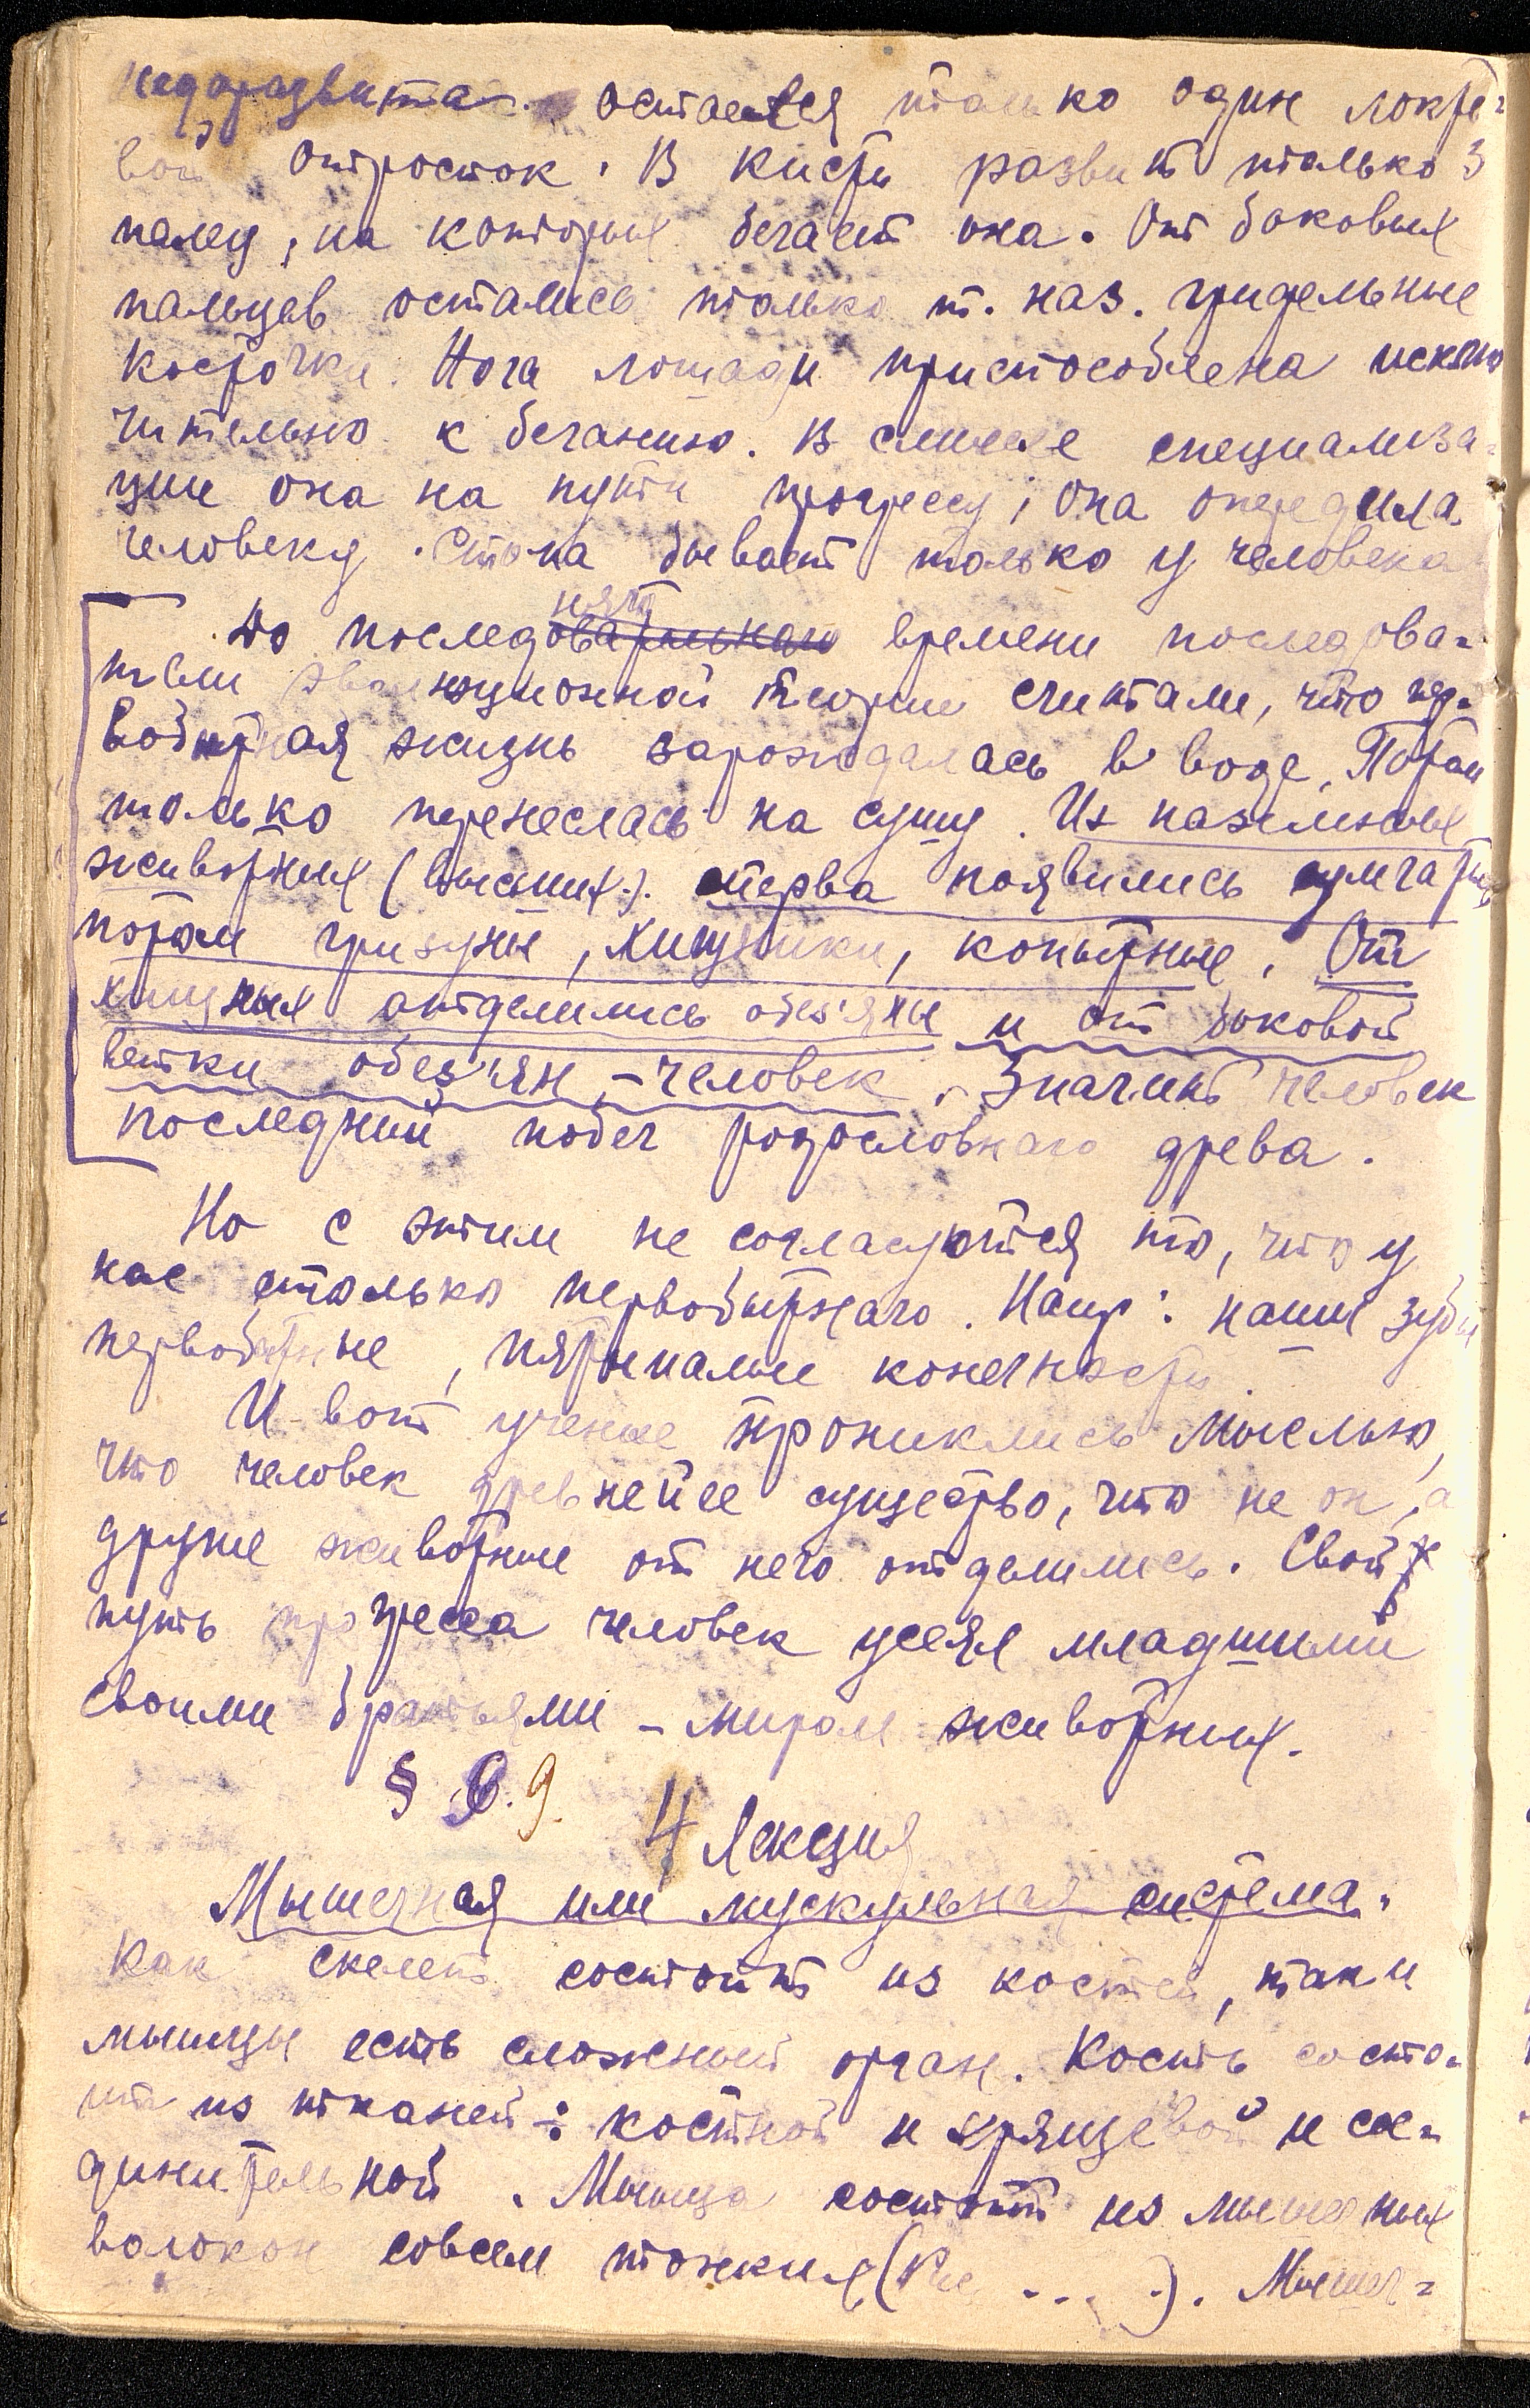 недоразвита. остается только один локте-
вой отросток. В кисти развит только 3
палец, на которых бегает она. От боковых
пальцев остались только т. наз. грифельные
косточки. Нога лошади приспособлена исклю
чительно к беганию. В смысле специализа-
ции она на пути прогресса; она опередила
человека. Стопа бывает только у человека
До последняго времени последова-
тели эволюционной теории считали, что пер-
вобытная жизнь зарождалась в воде. Потом
только перенеслась на сушу. Из наземных
животных (высших). сперва появились сумчатые
потом грызуны, хищники, копытные. От
хищных отделились обез'яны и от боковой
ветки обез'ян, – человек. Значит человек
последний побег родословнаго древа.
Но с этим не согласуются то, что у
нас столько первобытнаго. Напр: наши зубы
первобытные, пятипалые конечности.
И вот ученые прониклись мыслью,
что человек древнейшее существо, что не он, а
другие животные от него отделились. Свой
путь прогресса человек усеял младшими
своими братьями – миром животных.
§ 6. 9.
4 Лекция
Мышечная или мускульная система.
Как скелет состоит из костей, так и
мышцы есть сложный орган. Кость состо-
ит из тканей: костной и хрящевой и сое-
динительной. Мышца состоит из мышечных
волокон совсем тонких (Рис ... .). Мышеч-